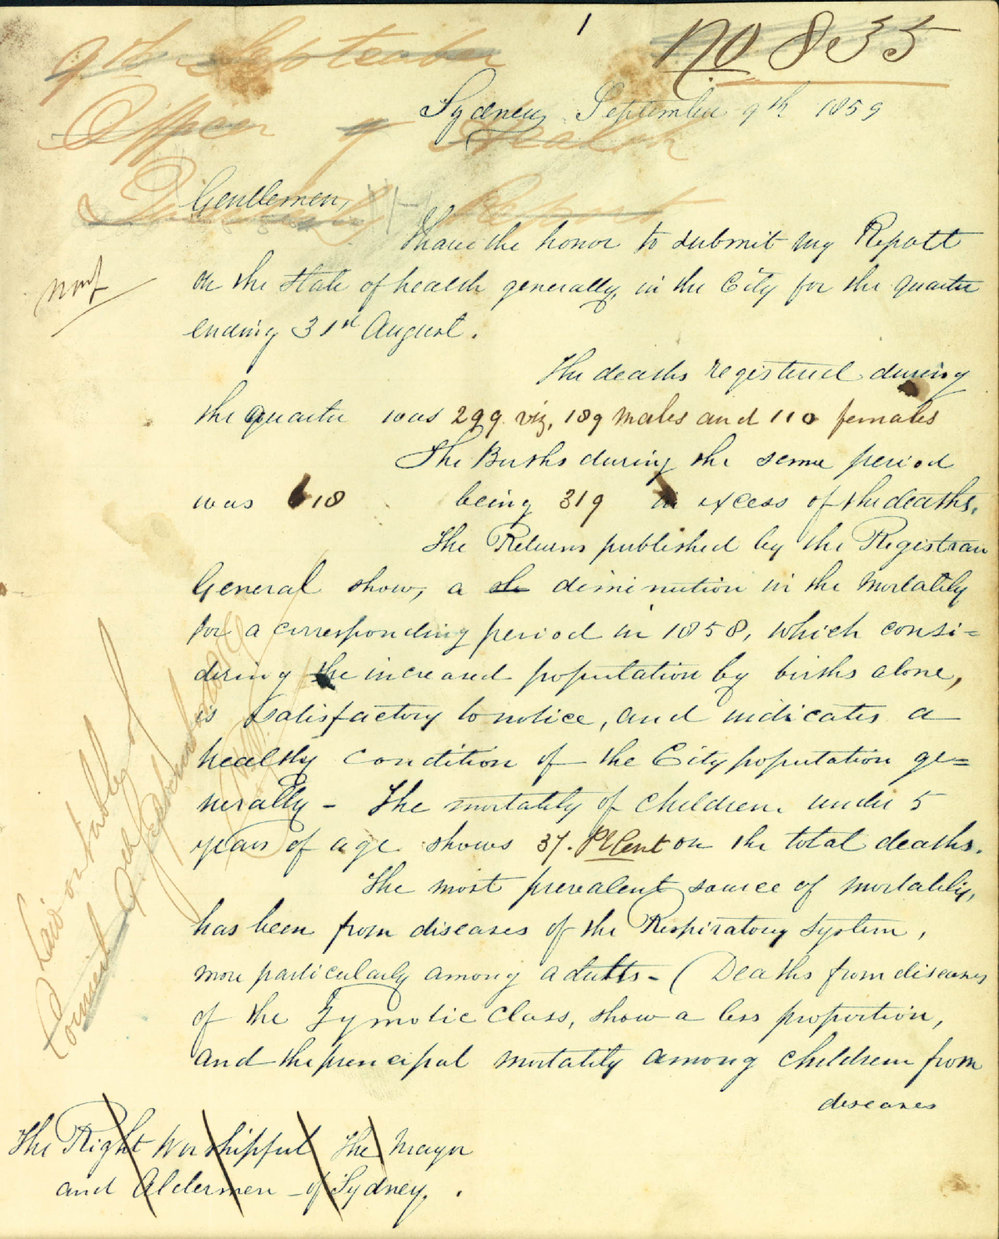 1
No 835
9th September
Officer of Health
Quarterly Report
Sydney September 9th 1859
Gentlemen,
I have the honor to submit my Report
on the state of health generally, in the City for the quarter
ending 31st August.
The deaths registered during
the quarter was 299 viz, 189 males and 110 females
The Births during the same period
was 618 being 319 in excess of the deaths.
The Returns published by the Registrar
General show, a diminution in the mortality
for a corresponding period in 1858, which consi=
dering the increased population by births alone,
is satisfactory to notice, and indicates a
healthy condition of the City population ge=
nerally - The mortality of children under 5
years of age shows 37. P Cent on the total deaths.
The most prevalent source of mortality,
has been from diseases of the Respiratory System,
more particularly among adults - (Deaths from diseases
of the Zymotic Class, show a less proportion,
and the principal mortality among children from
diseases
Laid on table of
Council 9th September 1859
The Right Worshipful The Mayor
and Aldermen of Sydney.